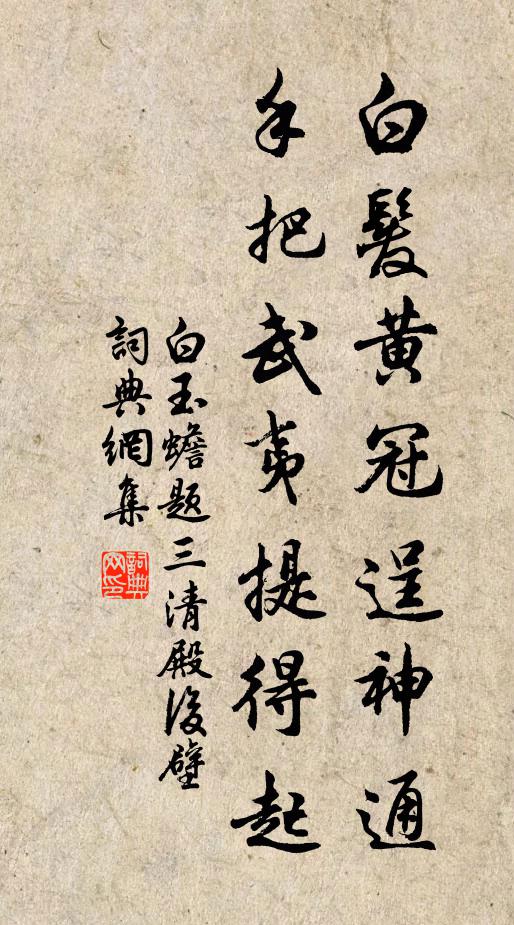 白髮黃冠逞神通
手把武夷提得起
白玉蟾題三清殿後壁
詞典網集
詞典网印